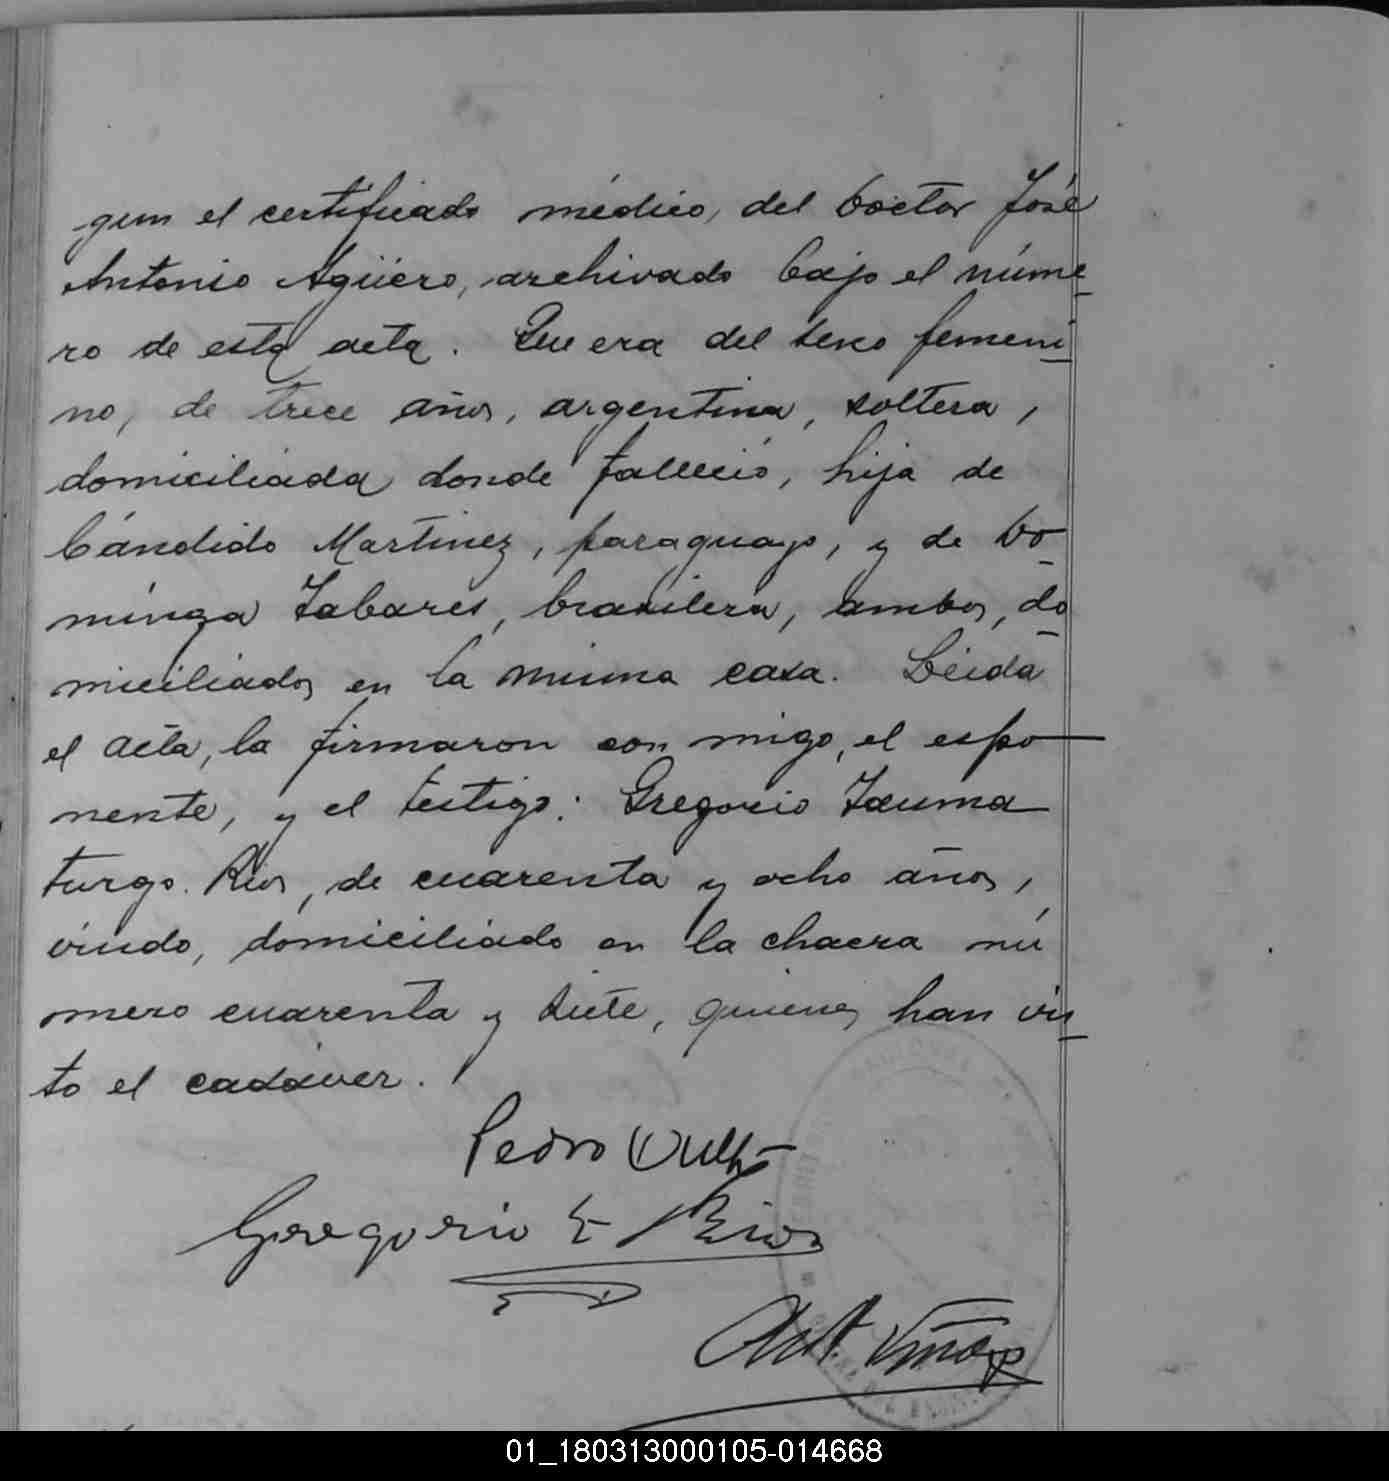 gun el certificado médico, del Doctor José
Antonio Agüero, archivado bajo el núme-
ro de esta acta. Que era del sexo femeni-
no, de trece años, argentina, soltera,
domiciliada donde falleció, hija de
Cándido Martinez, paraguayo, y de Do-
minga Tabares, brasilera, ambos, do-
miciliados en la misma casa. Leida
el acta, la firmaron con migo, el espo-
nente, y el testigo: Gregorio Tauma
turgo. Rios, de cuarenta y ocho años,
viudo, domiciliado en la chacra nú
mero cuarenta y siete, quienes han vis-
to el cadáver.
Pedro
Gregorio T Rios
01_180313000105-014668